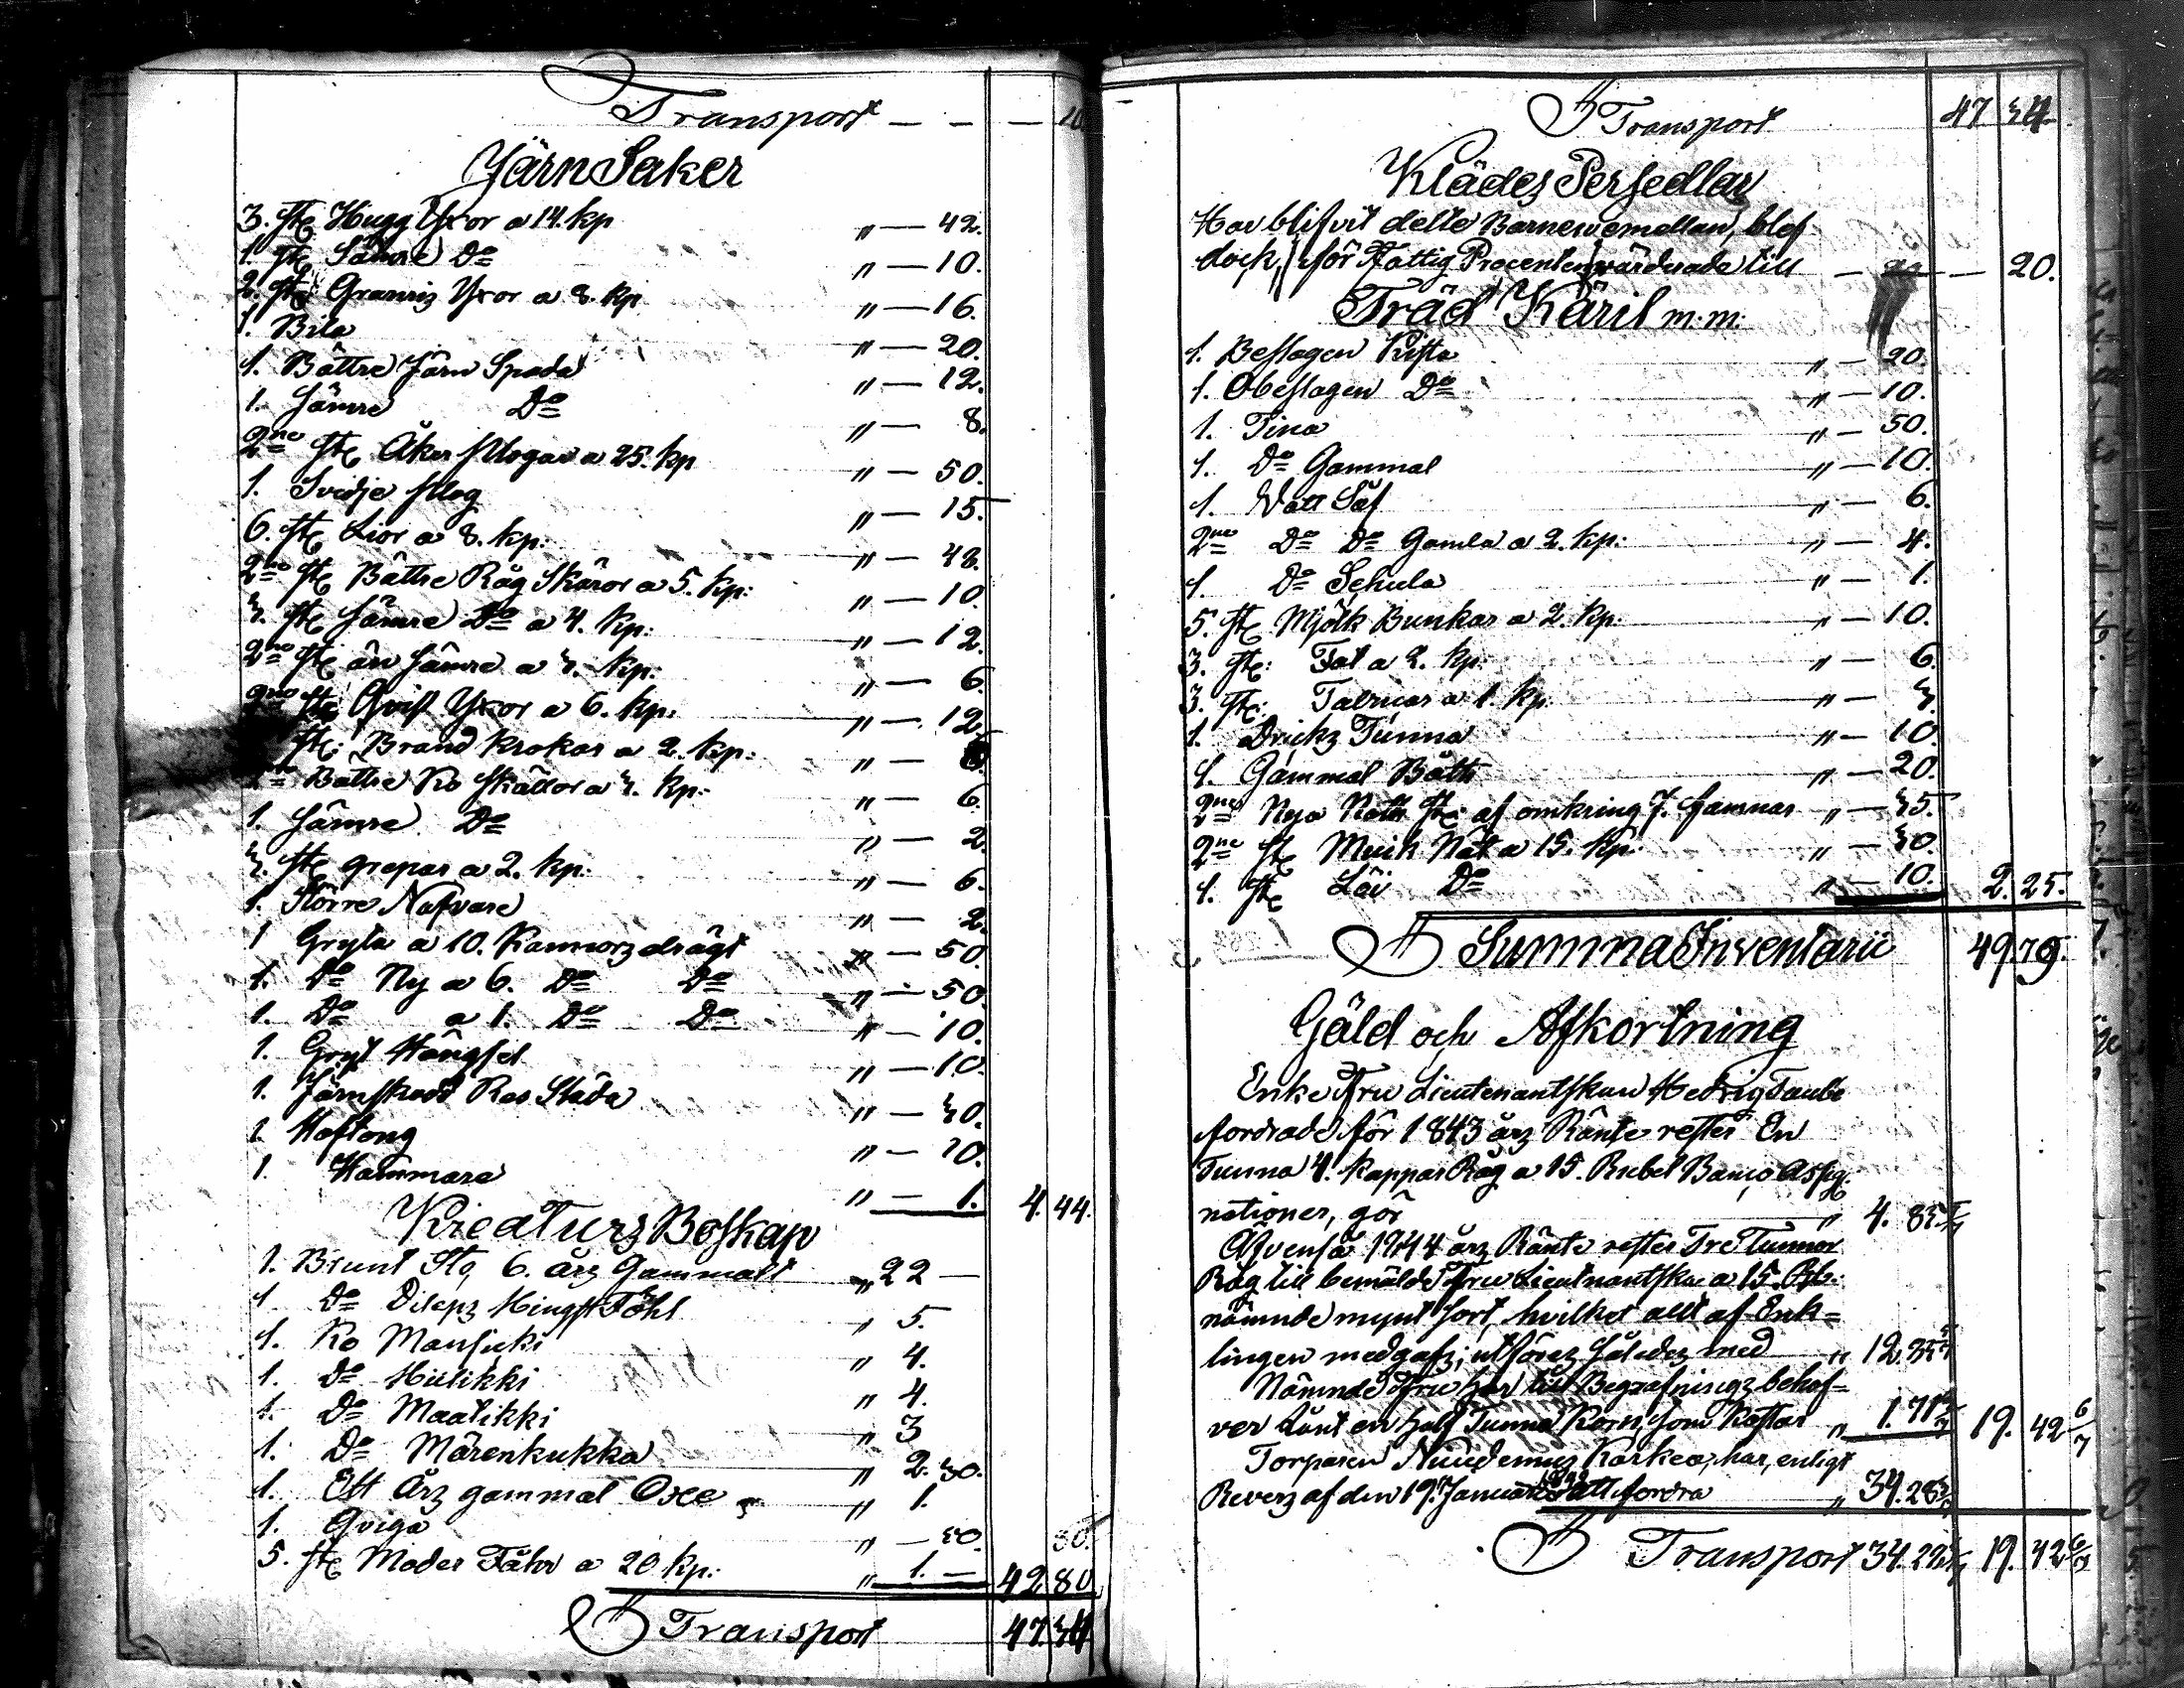 Transport — — — 10
JärnSaker
3. st. Hugg Yxor a 14. kp " — 42.
1. st. Sämre Do " — 10.
2. st. Granris Yxor a 8. kp " — 16.
1. Bila " — 20.
1. Bättre Järn Spada " — 12.
1. Sämre Do " — 8.
2ne st. Åker plogar a 25. kp " — 50.
1. Svidje plog " — 15.
6. st. Lior a 8. kp: " — 48.
2ne st. Bättre Råg Skäror a 5. kp: " — 10.
3. st. Sämre Do a 4. kp: " — 12.
2ne st. än sämre a 3. kp: " — 6.
2ne st. Qvist Yxor a 6. kp: " — 12.
st. Brand Krokar a 2. kp: " —
Bättre Ko Skällor a 3. kp: " — 6.
1. Sämre Do " — 2.
3. st. grepar a 2. kp: " — 6.
1. Större Nafvare " — 2.
1 Gryta a 10. Kannors drägt " — 50.
1. Do Ny a 6. Do Do " — 50.
1. Do a 1. Do Do " — 10.
1. Gryt Hängsel " — 10.
1. Järnskodd Res Släda " — 30.
1. Hoftong " — 10.
1. Hammare " — 1. 4. 44.
Kreaturs Boskap
1. Brunt Sto, 6. års Gammalt " 22 —
1 Do Hingst Fåhl " 5.
1. Ko Mansicki " 4.
1. Do Hielikki " 4.
1. Do Maatikki " 3
1. Do Märenkukka " 2. 30.
1. Ett Års gammal Oxe " 1.
1. Qviga " — 50.
5. st. Moder Fåhr a 20 kp: " 1. — 42 80
Transport 47. 34.
Transport 47 34.
Klädes Persedlar
Hav blifvit delte Barnen emellan, blef
dock, för Fattig Procenten värderade till — — 20.
Träd Käril m:m:
1. Beslagen Kista " — 20.
1. Obeslagen Do " — 10.
1. Tina " — 50.
1. Do Gammal " — 10.
1. Vatt Såf " — 6.
2ne Do Do Gamla a 2. kp: " — 4.
1 Do Schula " — 1.
5. st. Mjölk Bunkar a 2. kp: " — 10.
3. st: Fat a 2. kp: " — 6.
3. st: Talrikar a 1. kp. " — 3.
1. Dricks Tunna " — 10.
1. Gammal Båth " — 20.
2ne Nya Noth st: af omkring 7. famnar " — 35.
2ne st. Muik Nät a 15. kp. " — 30.
1. st. Löi Do " — 10. 2. 25.
Summa Inventarii 49. 79.
Gäld och Afkortning
Enke Fru Lieutenantskan Hedvig Taube
fordrade för 1843 års Ränte rester En
Tunna 4. kappar Råg a 15. Rubel Banco Assig-
nationer, gör " 4. 85 5/7
Äfvenså 1844 års Ränte rester Tre Tunnor
Råg till bemälde Fru Lieutnantska a 15. Rub.
nämnde mynt sort, hvilket allt af Enk=
lingen medgafs; utföres således med " 12. 85 5/7
Nämnde Fru har till Begrafnings behof=
ver lånt en half Tunna Korn som kostar " 1. 71 3/7 19. 42 6/7
Torparen Karkea, har, enligt
Revers af den 19. Januarii att fordra " 34. 28 4/7
Transport 34. 28 4/7 19. 42 6/7